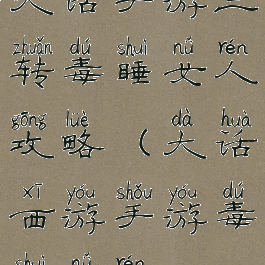 大话手游三
zhuǎn dú shuì nǚ rén
转毒睡女人
gōng lüè dà huà
攻略（大话
xī yóu shǒu yóu dú
西游手游毒
shuì nǚ rén